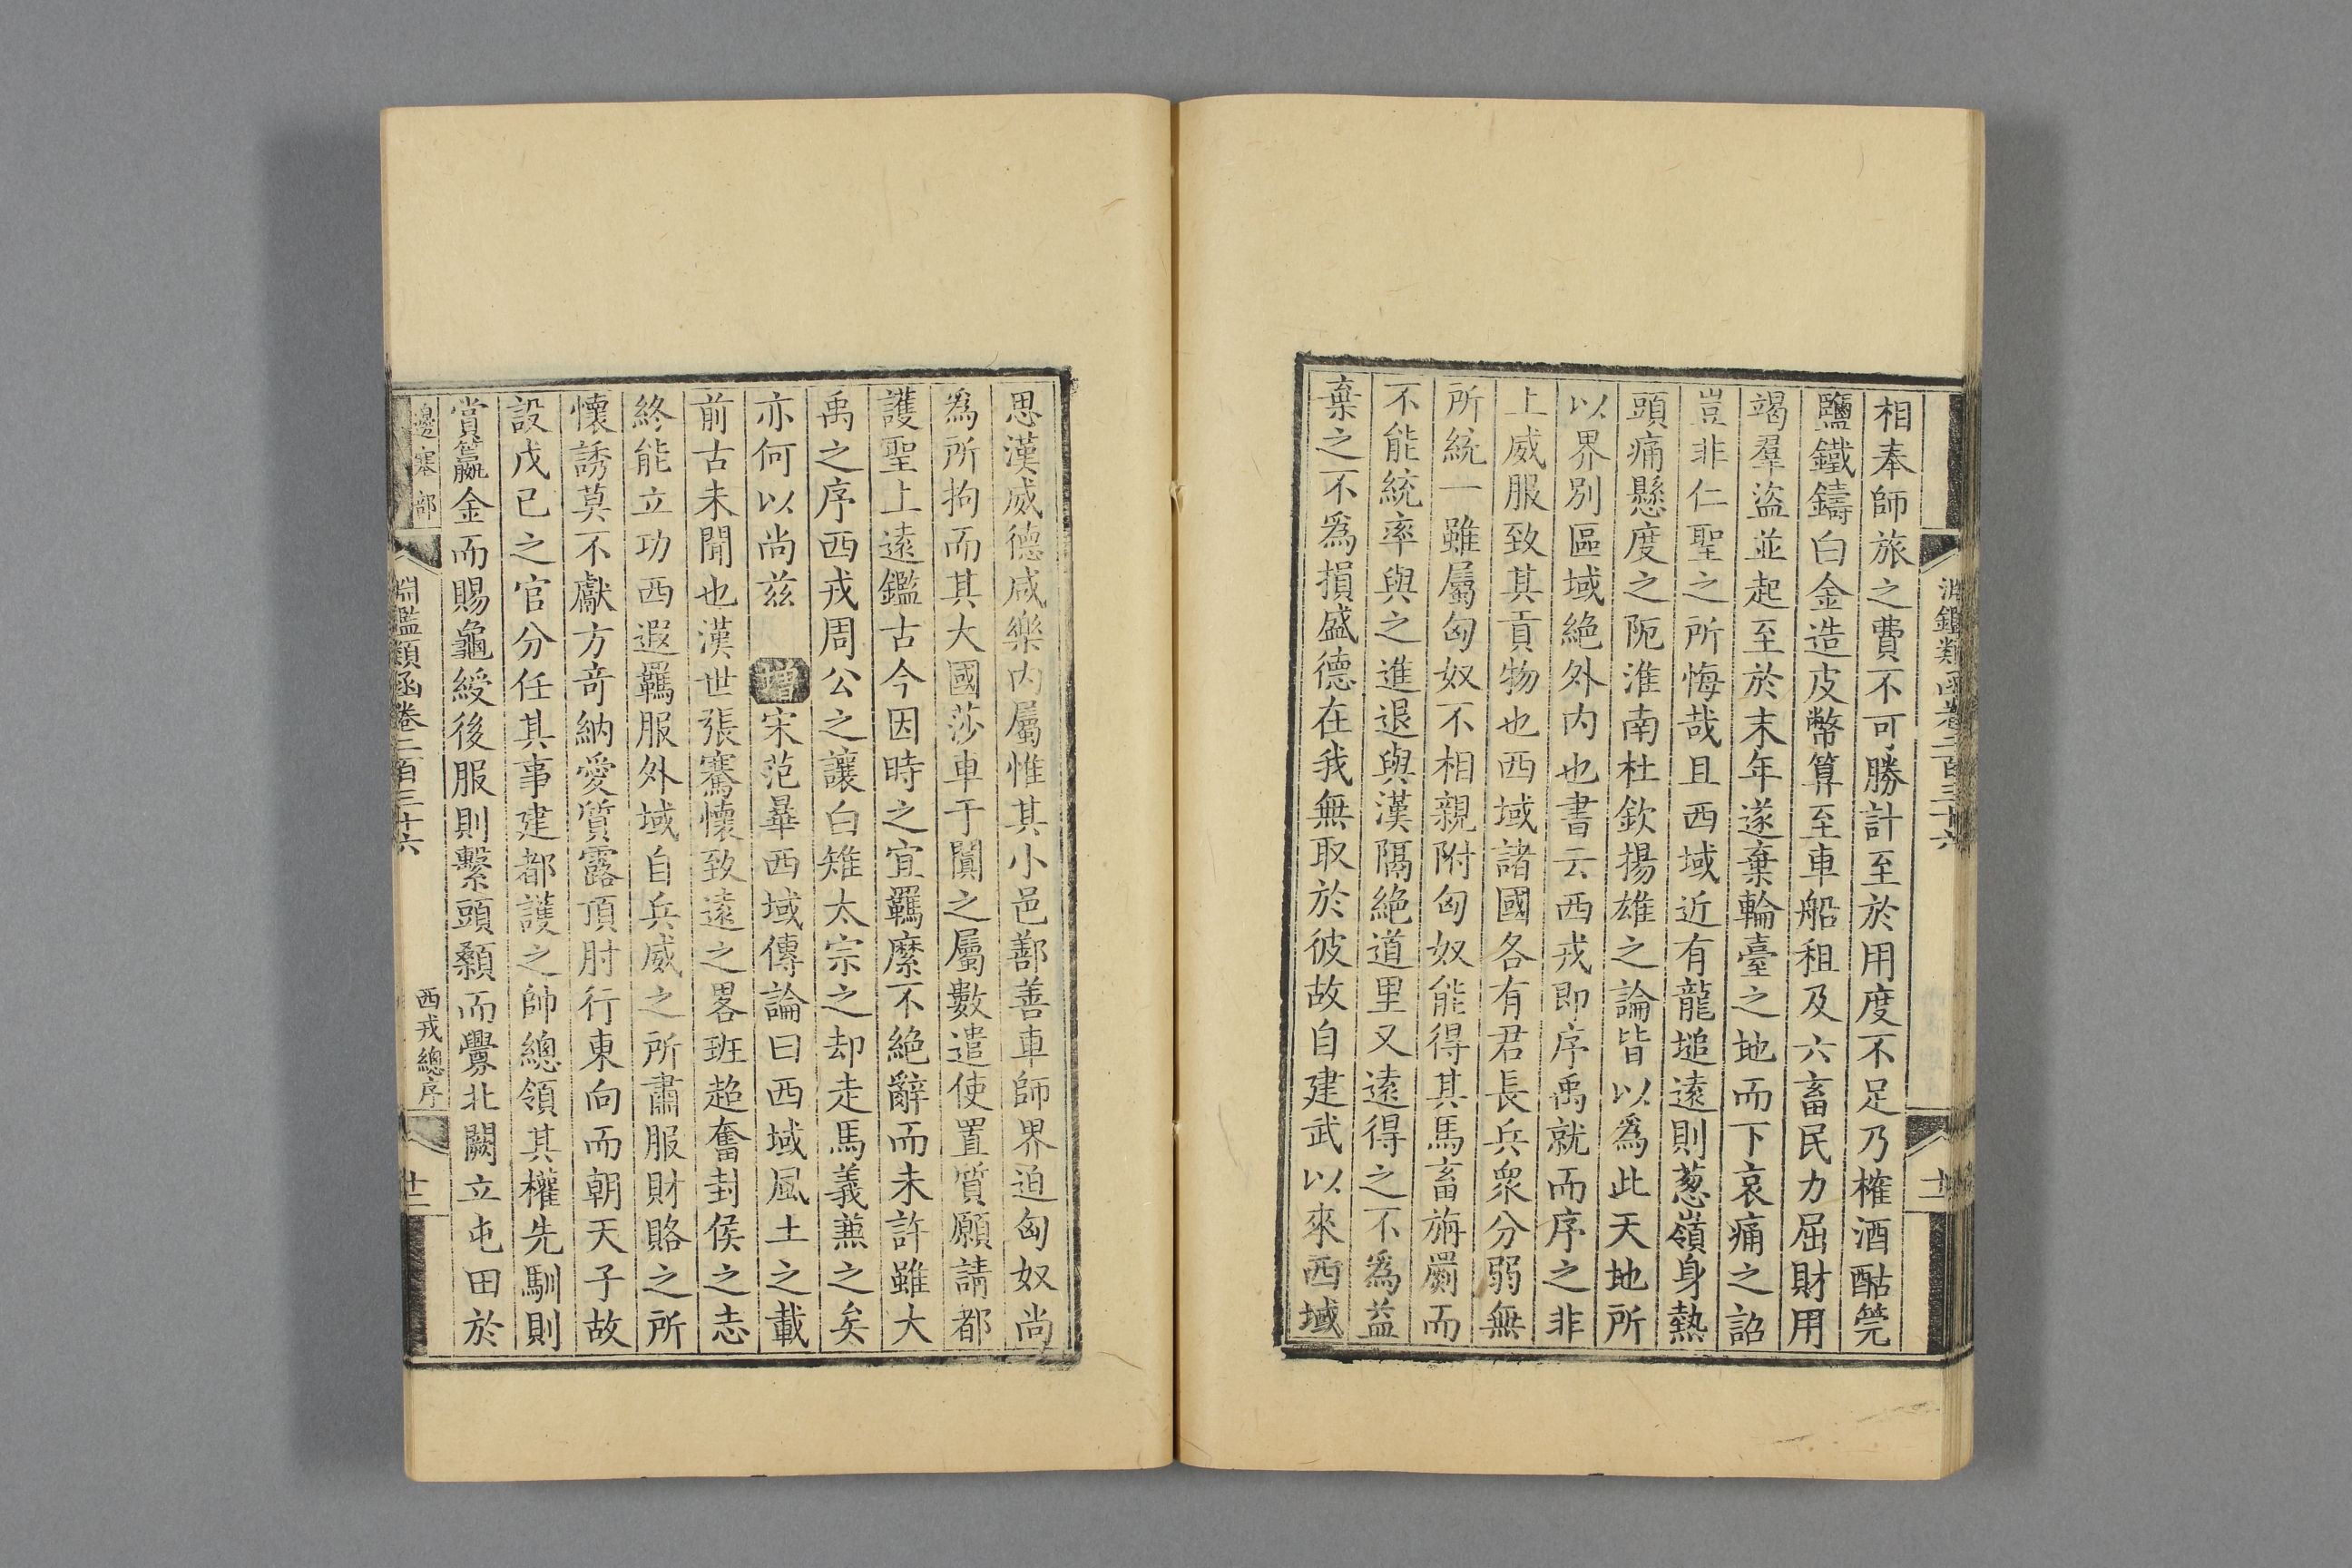 淵鑑類函卷二百三十六
相奉師旅之費不可勝計至於用度不足乃榷酒酤筦
鹽鐵鑄白金造皮幣算至車船租及六畜民力屈財用
竭羣盜並起至於末年遂棄輪臺之地而下哀痛之詔
豈非仁聖之所悔哉且西域近有龍堆遠則葱嶺身熱
頭痛懸度之阨淮南杜欽揚雄之論皆以為此天地所
以界別區域絶外内也書云西戎即序禹就而序之非
上威服致其貢物也西域諸國各有君長兵衆分弱無
所統一雖屬匈奴不相親附匈奴能得其馬畜旃罽而
不能統率與之進退與漢隔絶道里又遠得之不為益
棄之不為損盛德在我無取於彼故自建武以來西域
思漢威德咸樂内屬惟其小邑鄯善車師界迫匈奴尚
為所拘而其大國莎車于闐之屬數遣使置質願請都
護聖上遠鑑古今因時之宜羈縻不絶辭而未許雖大
禹之序西戎周公之讓白雉太宗之却走馬義蕪之矣
亦何以尚兹 增宋范曅西域傳論曰西域風土之載
前古未聞也漢世張騫懷致遠之畧班超奮封侯之志
終能立功西遐羈服外域自兵威之所肅服財賂之所
懷誘莫不獻方竒納愛質露頂肘行東向而朝天子故
設戊已之官分任其事建都護之帥總領其權先馴則
賞籯金而賜龜綬後服則繫頭顙而釁北闕立屯田於
邊塞部 淵鑑類函卷二百三十六 西戎總序 廿二